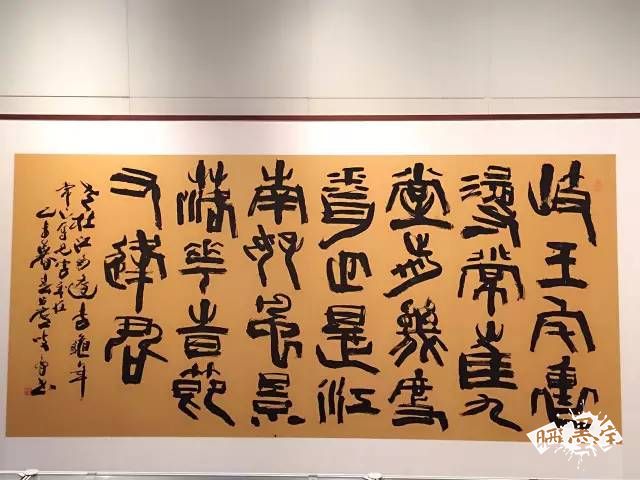 岐王宅裏
尋常崔九
堂前幾度
聞正是江
南好風景
落花時節
又逢君
江南逢李龜年